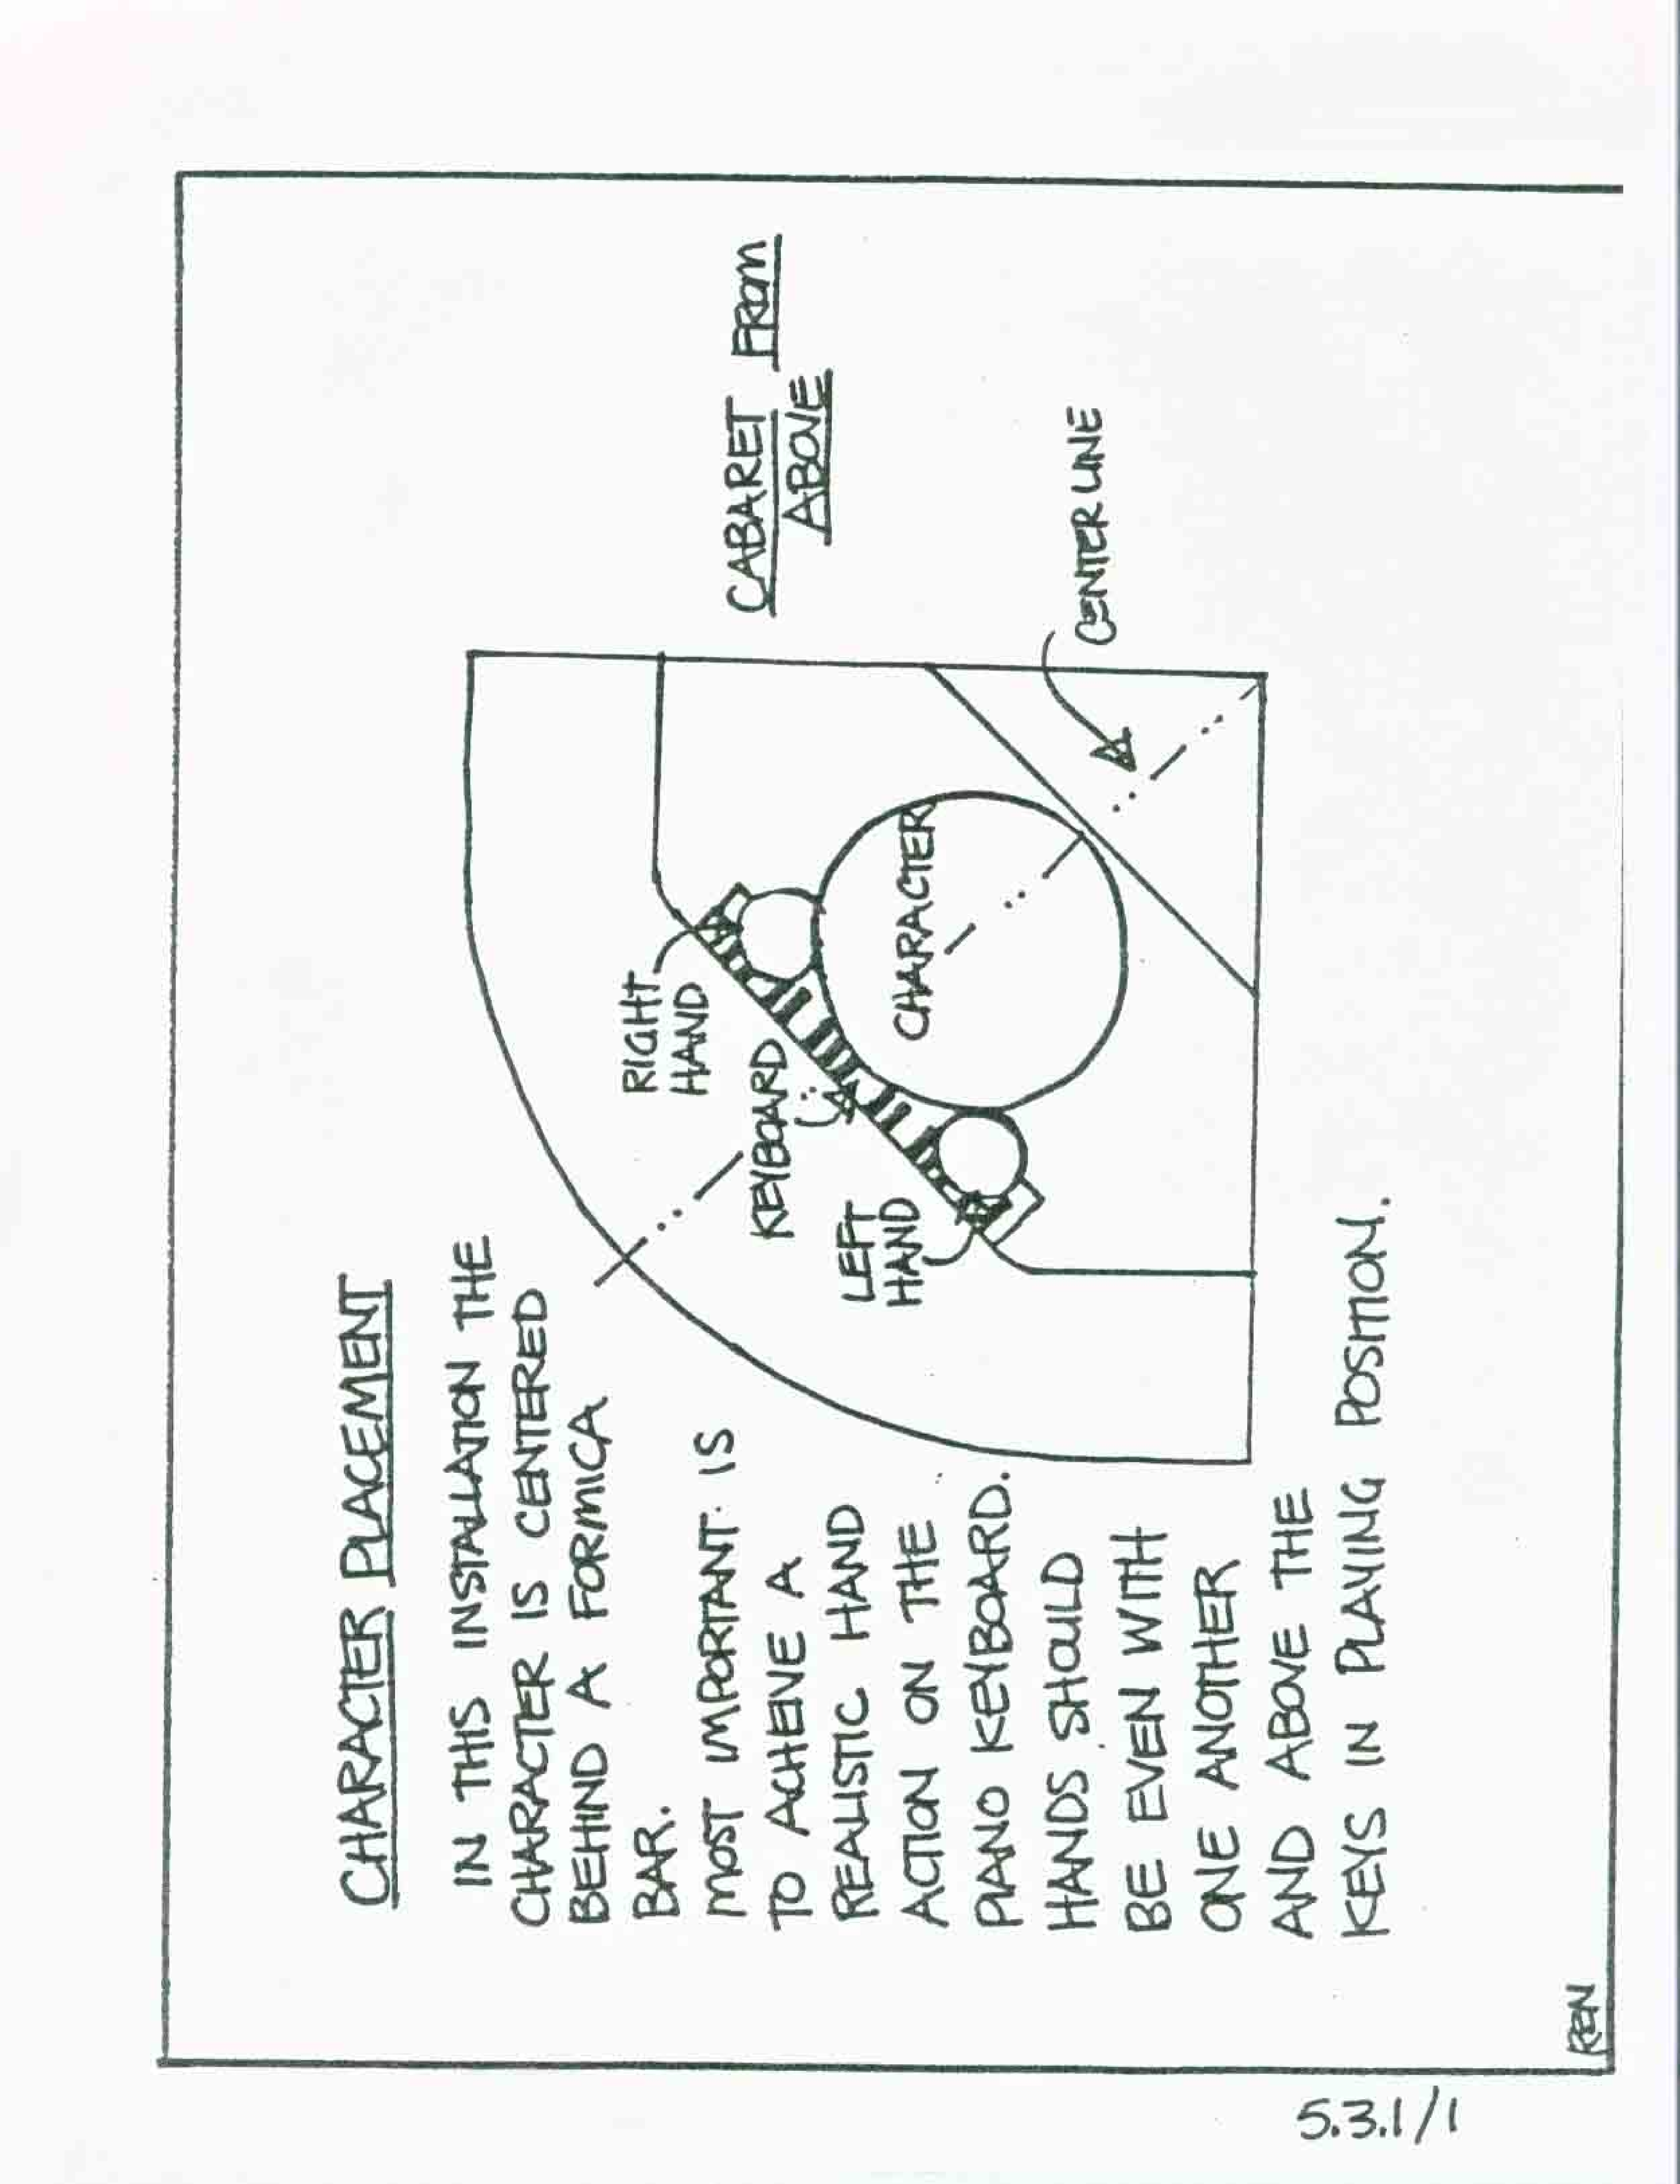 CHARACTER PLACEMENT
IN THIS INSTALLATION THE
CHARACTER IS CENTERED
BEHIND A FORMICA
BAR.
MOST IMPORTANT IS
TO ACHEIVE A
REALISTIC HAND
ACTION ON THE
PIANO KEYBOARD.
HANDS SHOULD
BE EVEN WITH
ONE ANOTHER
AND ABOVE THE
KEYS IN PLAYING POSITION.
RIGHT
HAND
KEYBOARD
LEFT
HAND
CHARACTER
CABARET FROM
ABOVE
CENTER LINE
REN
5.3.1/1